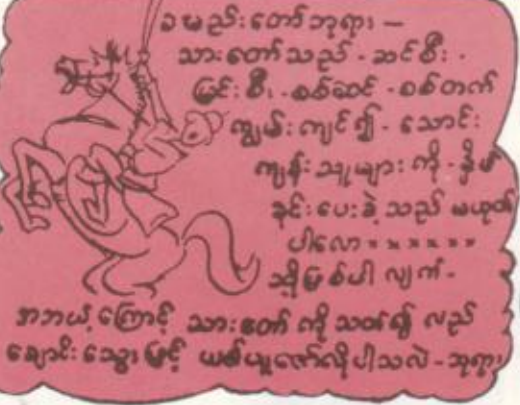 ခမည်းတော်ဘုရား –
သားတော်သည် - ဆင်စီး -
မြင်းစီး - စစ်ဆင် - စစ်တက်
ကျွမ်းကျင်၍ - သောင်း
ကျန်းသူများကို - နှိမ်
နင်းပေးခဲ့သည် မဟုတ်
ပါလော × × × × × ×
သို့ဖြစ်ပါလျက် -
အဘယ့်ကြောင့် သားတော်ကို သတ်၍ လည်
ချောင်းသွေးဖြင့် ယစ်ပူဇော်လိုပါသလဲ - ဘုရား